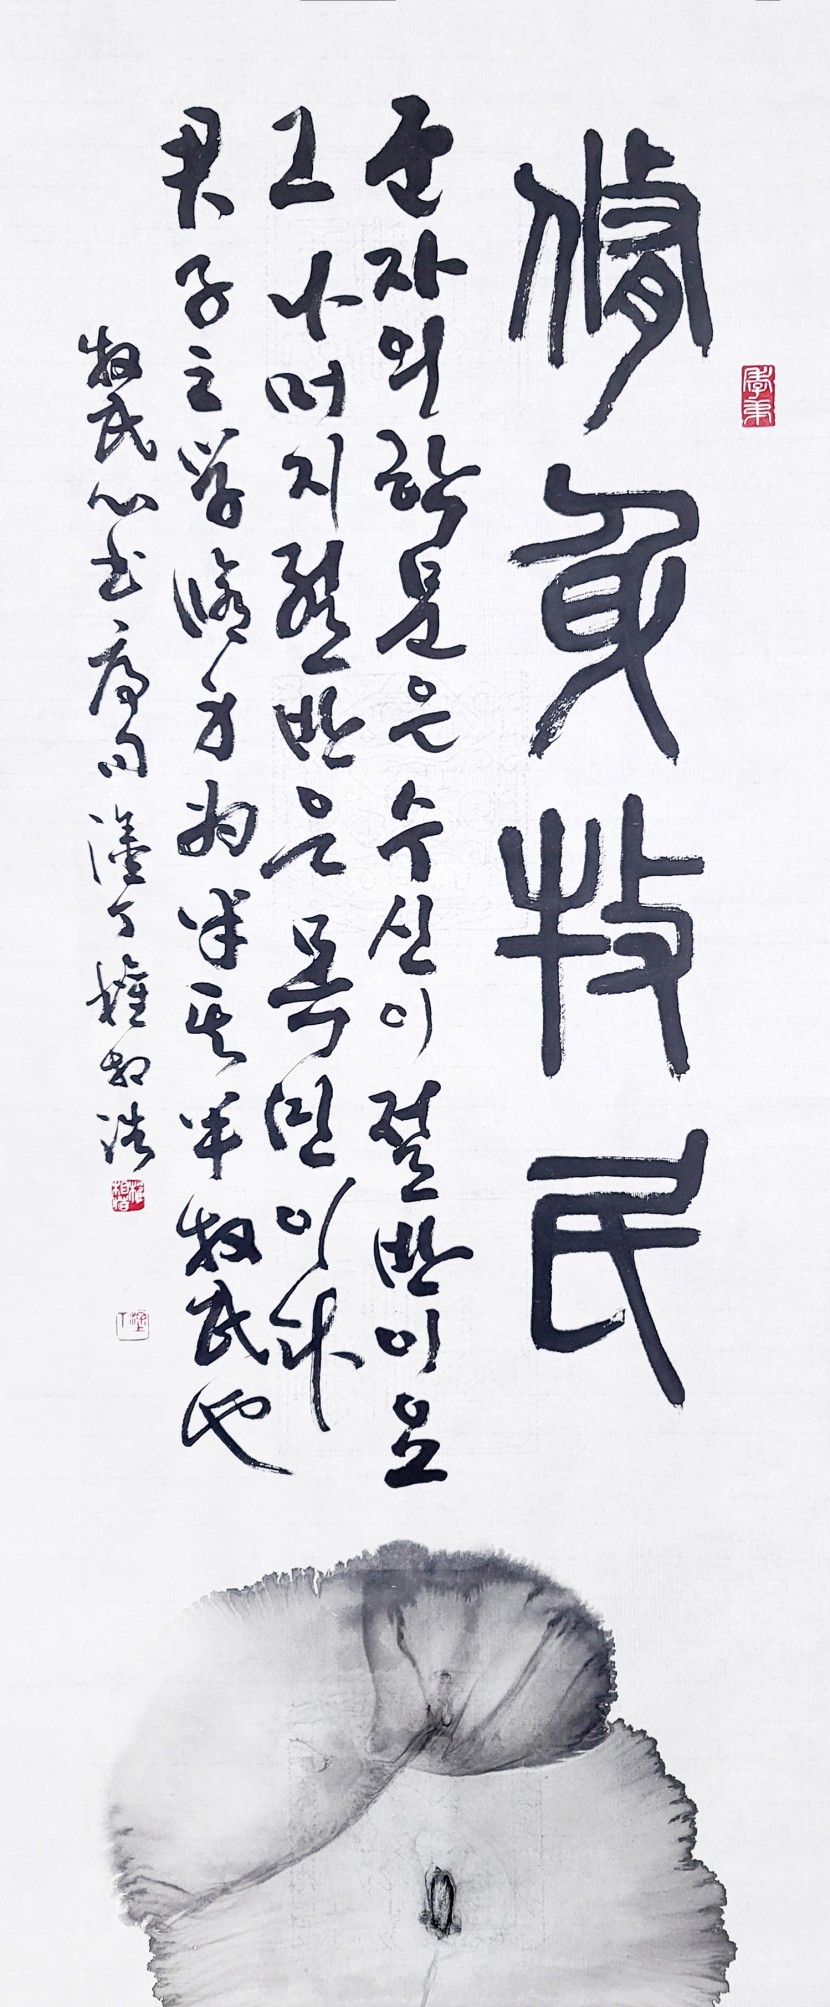 修身牧民
군자의학문은수신이절반이오
그나머지절반은목민이다
君子之学修身为半其半牧民也
牧民心书序句塗丁權相浩